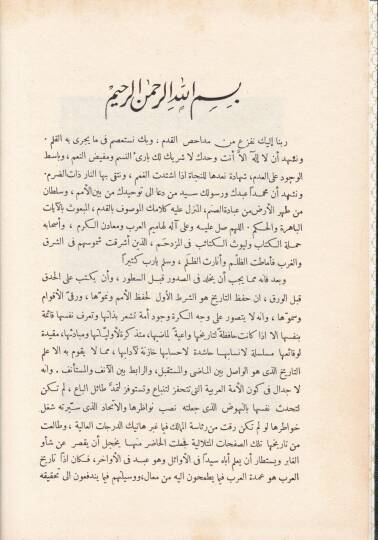 بسم الله الرحمن الرحيم
ربنا إليك نفزع من مداحض القدم ، وبك نستعصم فى ما يجرى به القلم .
ونشهد أن لا إله الا أنت وحدك لا شريك لك بارئ النسم ومفيض النعم ، وباسط
الوجود على العدم ، شهادة نعدها للنجاة اذا اشتدت الغمم ، ونتقى بها النار ذات الضرم .
ونشهد أن محمداً عبدك ورسولك سيد من دعا الى توحيدك من بين الأمم ، وسلطان
من طهر الأرض من عبادة الصنم ، المنزل عليه كلامك الموصوف بالقدم ، المبعوث بالآيات
الباهرة والحكم . اللهم صل عليه وعلى آله لهاميم العرب ومعادن الكرم . وأصحابه
حملة الكتاب وليوث الكتائب فى المزدحم ، الذين أشرقت شموسهم فى الشرق
والغرب فأماطت الظلم وأنارت الظلم ، وسلم يارب كثيراً
وبعد فانه مما يجب أن يخلد فى الصدور قبل السطور ، وأن يكتب على الحدق
قبل الورق ، ان حفظ التاريخ هو الشرط الأول لحفظ الأمم ونموها ، ورقى الأقوام
وسموها ، وانه لا يتصور على وجه الكرة وجود أمة تشعر بذاتها وتعرف نفسها قائمة
بنفسها الا اذا كانت حافظة لتاريخها واعية لماضيها ، متذكرة لأولياتها ومبادئها ، مقيدة
لوقائعها مسلسلة لانسابها حاشدة لاحسابها خازنة لآدابها ، مما لا يقوم به الا علم
التاريخ الذى هو الواصل بين الماضى والمستقبل ، والرابط بين الآنف والمستأنف . وانه
لا جدال فى كون الأمة العربية التى تتحفز لتتباع وتستوفز لتمد طائل الباع ، لم تكن
لتحدث نفسها بالنهوض الذى جعلته نصب نواظرها والاتحاد الذى صيرته شغل
خواطرها لو لم تكن رقت من رئاسة الممالك فيما غبر هاتيك الدرجات العالية ، وطالعت
من تاريخها تلك الصفحات المتلالية فجعلت الحاضر منها يخجل أن يقصر عن شأو
الغابر ويستطار أن يعلم أباه سيداً فى الأوائل وهو عبد فى الأواخر ، فكان اذا تاريخ
العرب هو عمدة العرب فيما يطمحون اليه من معال ، ووسيلتهم فيما يندفعون الى تحقيقه